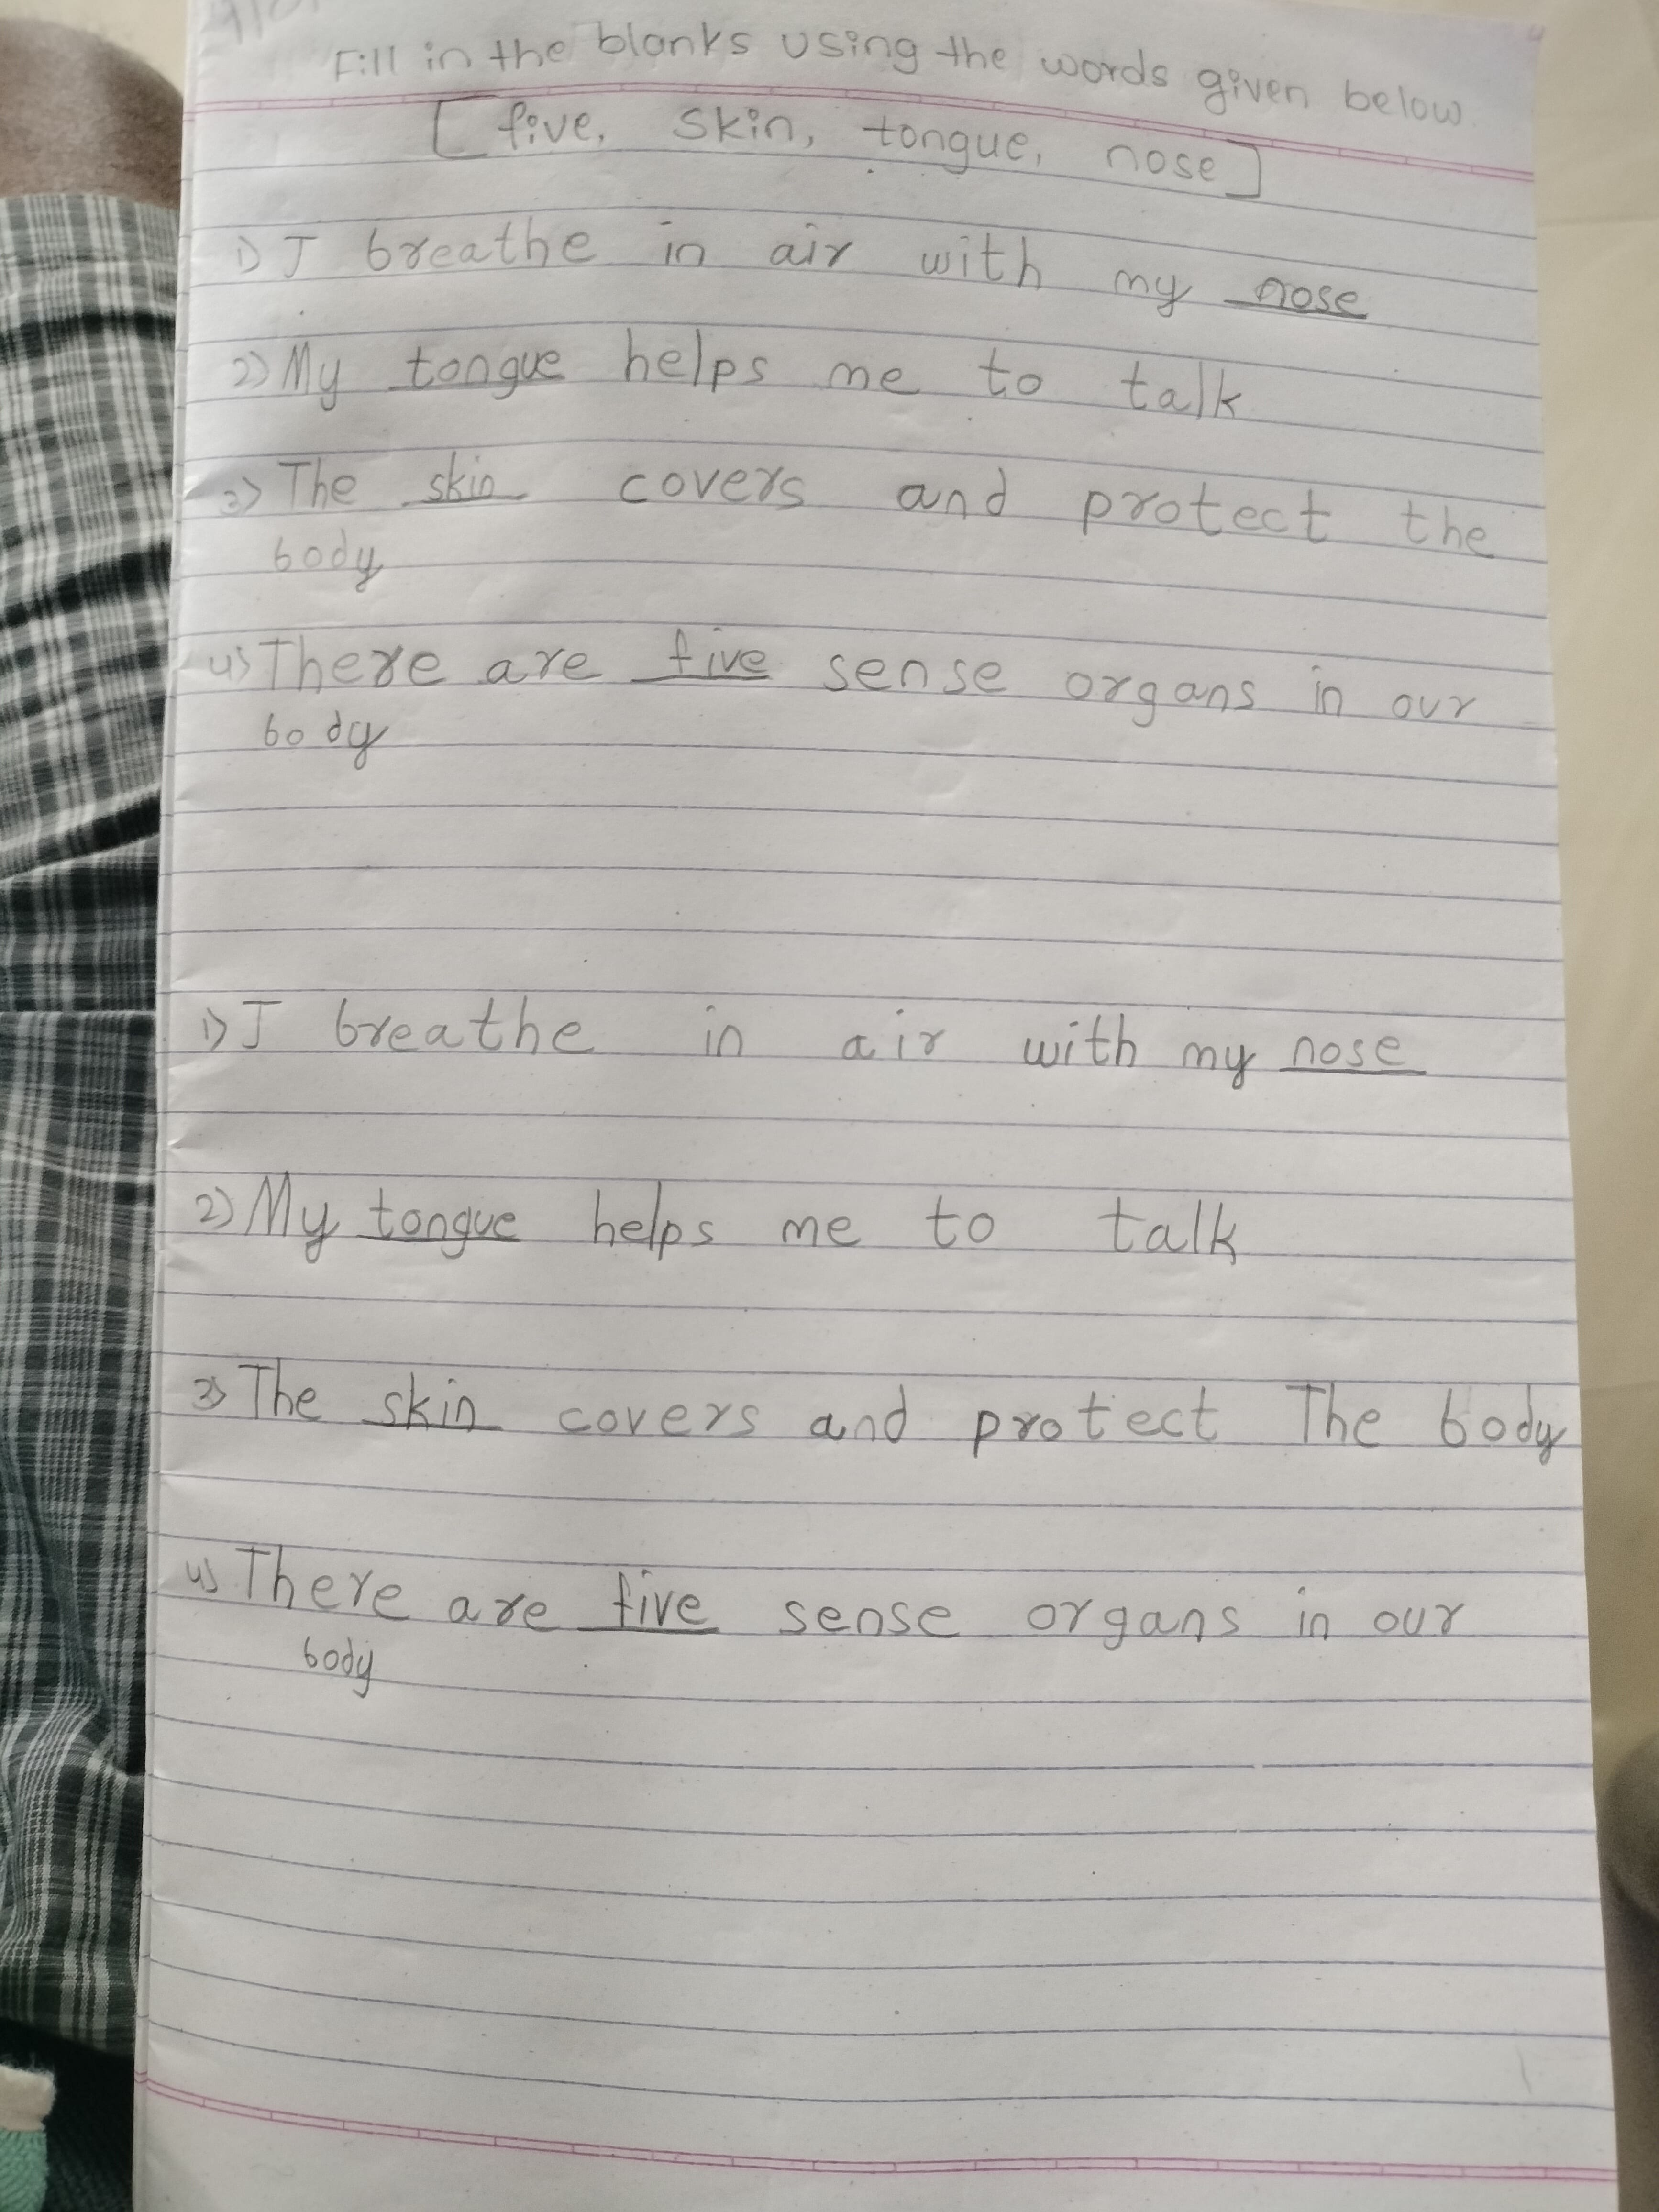 Fill in the blanks using the words given below
[ five, skin, tongue, nose ]
1) I breathe in air with my nose
2) My tongue helps me to talk
3) The skin covers and protect the
body
4) There are five sense organs in our
body
1) I breathe in air with my nose
2) My tongue helps me to talk
3) The skin covers and protect The body
4) There are five sense organs in our
body